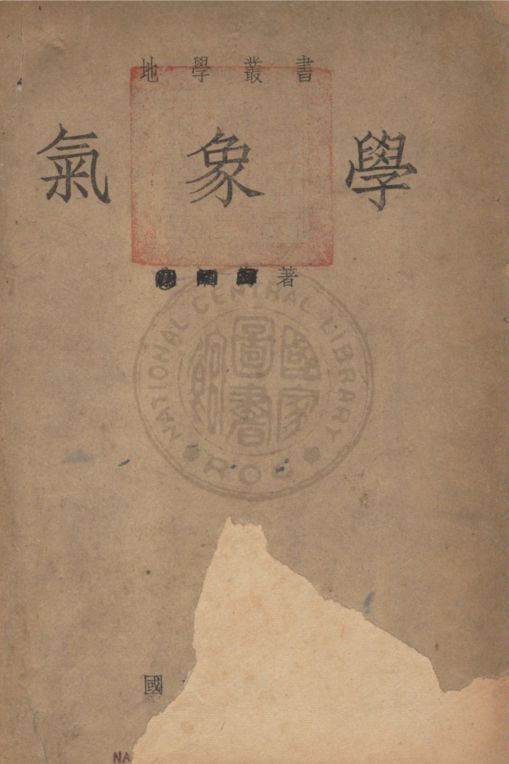 地學叢書
氣象學
著
NATIONAL CENTRAL LIBRARY
國家圖書館
ROC
國
NA